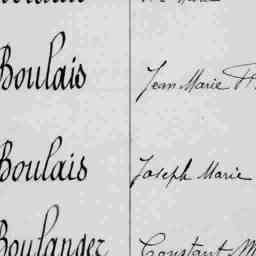 Boulais Jean Marie
Boulais Joseph Marie
Boulanger Constant M